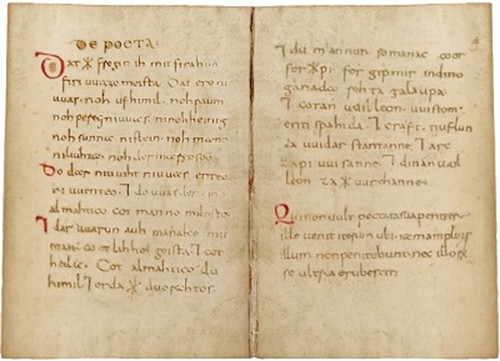 DE POETA
Dat * fregin ih mit firahim
firi uuizzo meista. Dat ero ni
uuas. noh ufhimil. noh paum
noh pereg ni uuas. ni nohheinig
noh sunna ni stein. noh mano
ni liuhta. noh der mareo seo.
Do dar niuuiht ni uuas enteo
ni uuenteo. ⁊ do uuas der eino
almahtico cot manno miltisto
⁊ dar uuarun auh manake mit
inan. cootlihhe geista. ⁊ cot
heilac. Cot almahtico du
himil ⁊ erda * uuorahtos
⁊ du mannun so manac coot
for *pi. for gip mir in dino
ganada rehta galaupa.
⁊ cotan uuilleon. uuistom.
enti spahida. ⁊ craft. tiuflun
za uuidar stantanne. ⁊ arc
za pi uuisanne. ⁊ dinan uuil
leon za * uurchanne.
Qui non uult peccata sua penitere
ille uenit iterum ubi iam amplius
illum non penitebunt nec illorum
se ultra erubescit